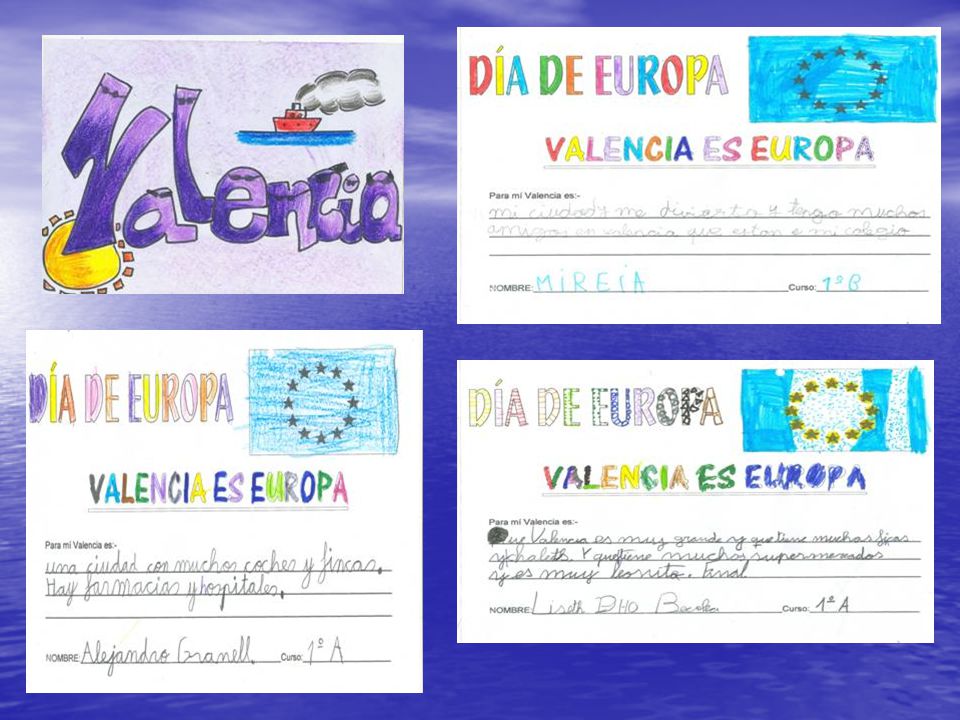 Valencia
DÍA DE EUROPA
VALENCIA ES EUROPA
Para mí Valencia es:-
mi ciudad y me divierto y tengo muchos
amigos en valencia que estan e mi colegio
NOMBRE: MIREIA Curso: 1º B
DÍA DE EUROPA
VALENCIA ES EUROPA
Para mí Valencia es:-
una ciudad con muchos coches y fincas.
Hay farmacias y hospitales.
NOMBRE: Alejandro Granell. Curso: 1º A
DÍA DE EUROPA
VALENCIA ES EUROPA
Para mí Valencia es:-
Que Valencia es muy grande y que tiene muchas
y chaleth. Y que tiene muchos supermercados
y es muy
NOMBRE: Liseth Curso: 1º A